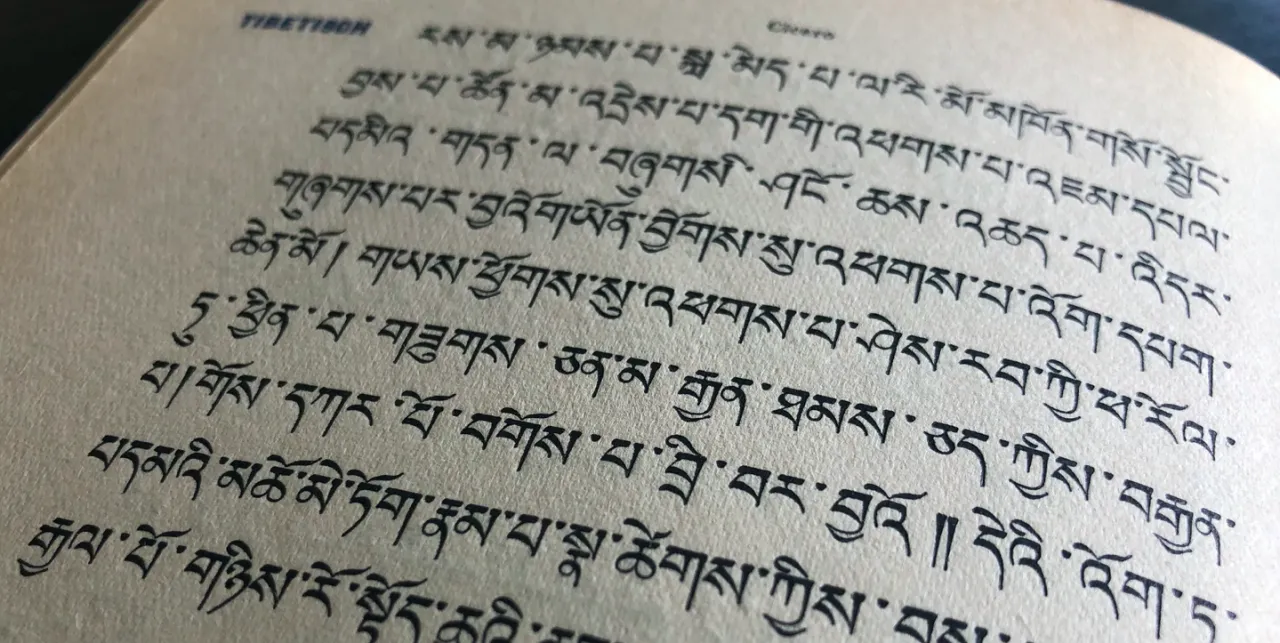 TIBETISCH
Cicero
རས་མ་ཉམས་པ་སྐྲ་མེད་པ་ལ་རི་མོ་མཁོན་གསོ་སྦྱོང་
བྱས་པ་ཚོན་མ་འདྲེས་པ་དག་གི་འཕགས་པ་འཇམ་དཔལ་
པདམིའ་གདན་ལ་བཞུགས་ཤིང་ཆས་འཆད་པ་འིདར་
གཞུགས་པར་བྱའོ་གཡོན་ཕྱོགས་སུ་འཕགས་པ་འོག་དཔག་
ཆེན་མོ། གཡས་ཕྱོགས་སུ་འཕགས་པ་ཤེས་རབ་ཀྱི་ཕ་རོལ་
ཏུ་ཕྱིན་པ་གཟུགས་ཅན་མ་རྒྱན་ཐམས་ཅད་ཀྱིས་བརྒྱན་
པ། གོས་དཀར་པོ་བགོས་པ་བྲི་བར་བྱའོ༎ དེའི་འོག་ཏ་
པདམའི་མཚོ་མེ་ཏོག་རྣམ་པ་སྣ་ཚོགས་ཀྱིས་
རྒྱལ་པོ་གཉིས་རོ་སྟོད་